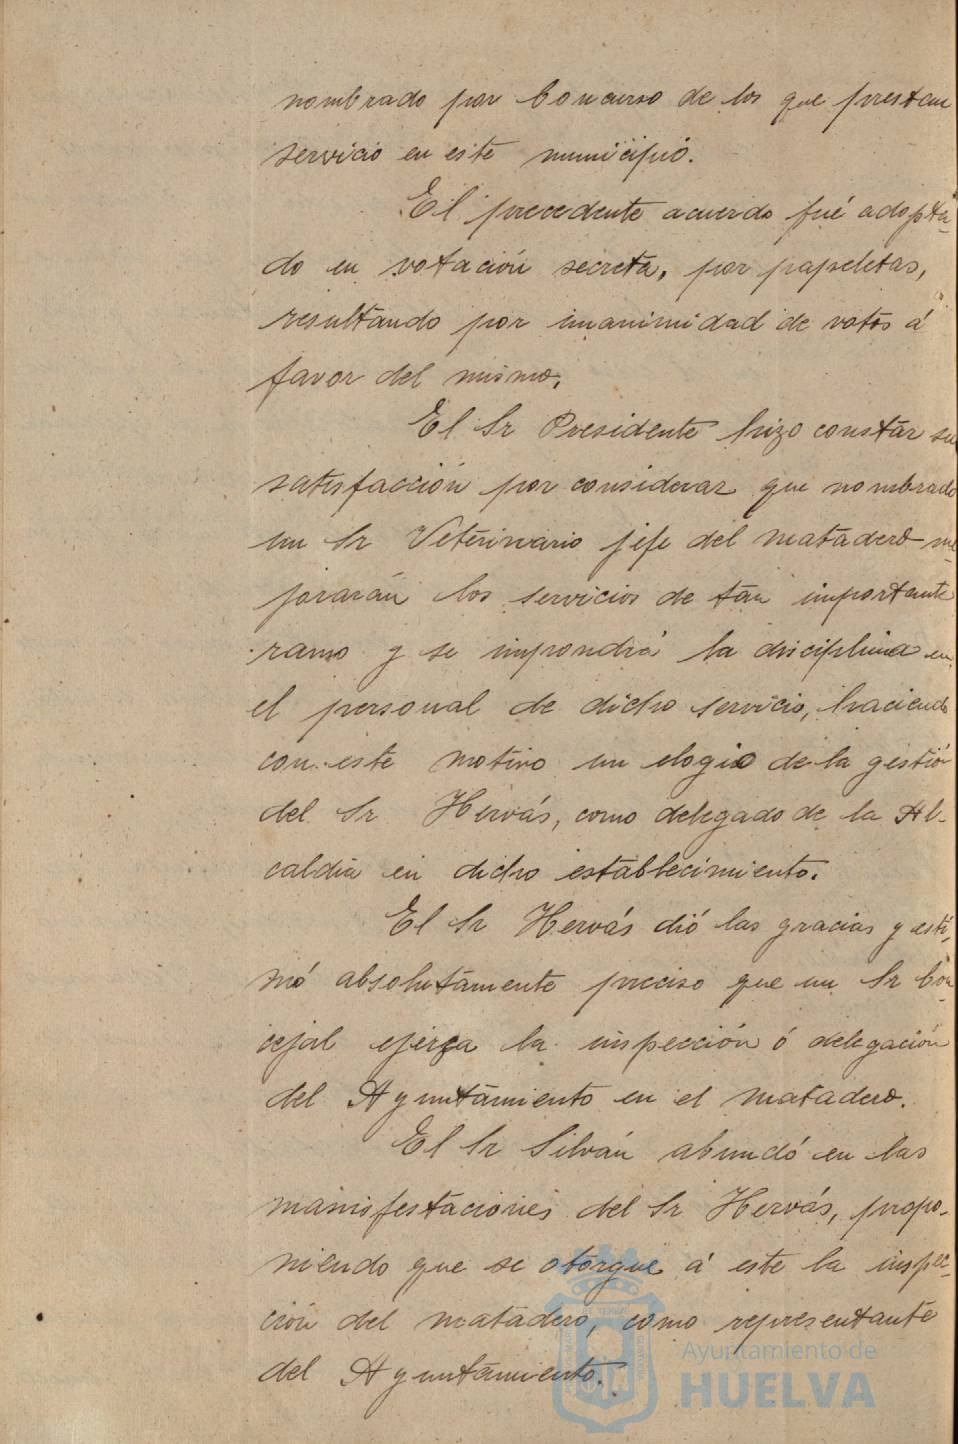 nombrado por Concurso de los que prestan
servicio en este municipio.
El precedente acuerdo fué adopta-
do en votación secreta, por papeletas,
resultando por unanimidad de votos á
favor del mismo.
El Sr Presidente hizo constar su
satisfacción por considerar que nombrado
un Sr Veterinario jefe del matadero me-
jorarán los servicios de tan importante
ramo y se impondrá la disciplina en
el personal de dicho servicio, haciendo
con este motivo un elogio de la gestión
del Sr Hervás, como delegado de la Al-
caldía en dicho establecimiento.
El Sr Hervás dió las gracias y esti-
mó absolutamente preciso que un Sr Con-
cejal ejerza la inspección ó delegación
del Ayuntamiento en el matadero.
El Sr Silván abundó en las
manisfestaciones del Sr Hervás, propo-
niendo que se otorgue á este la inspec-
ción del matadero, como representante
del Ayuntamiento.
Ayuntamiento de
HUELVA